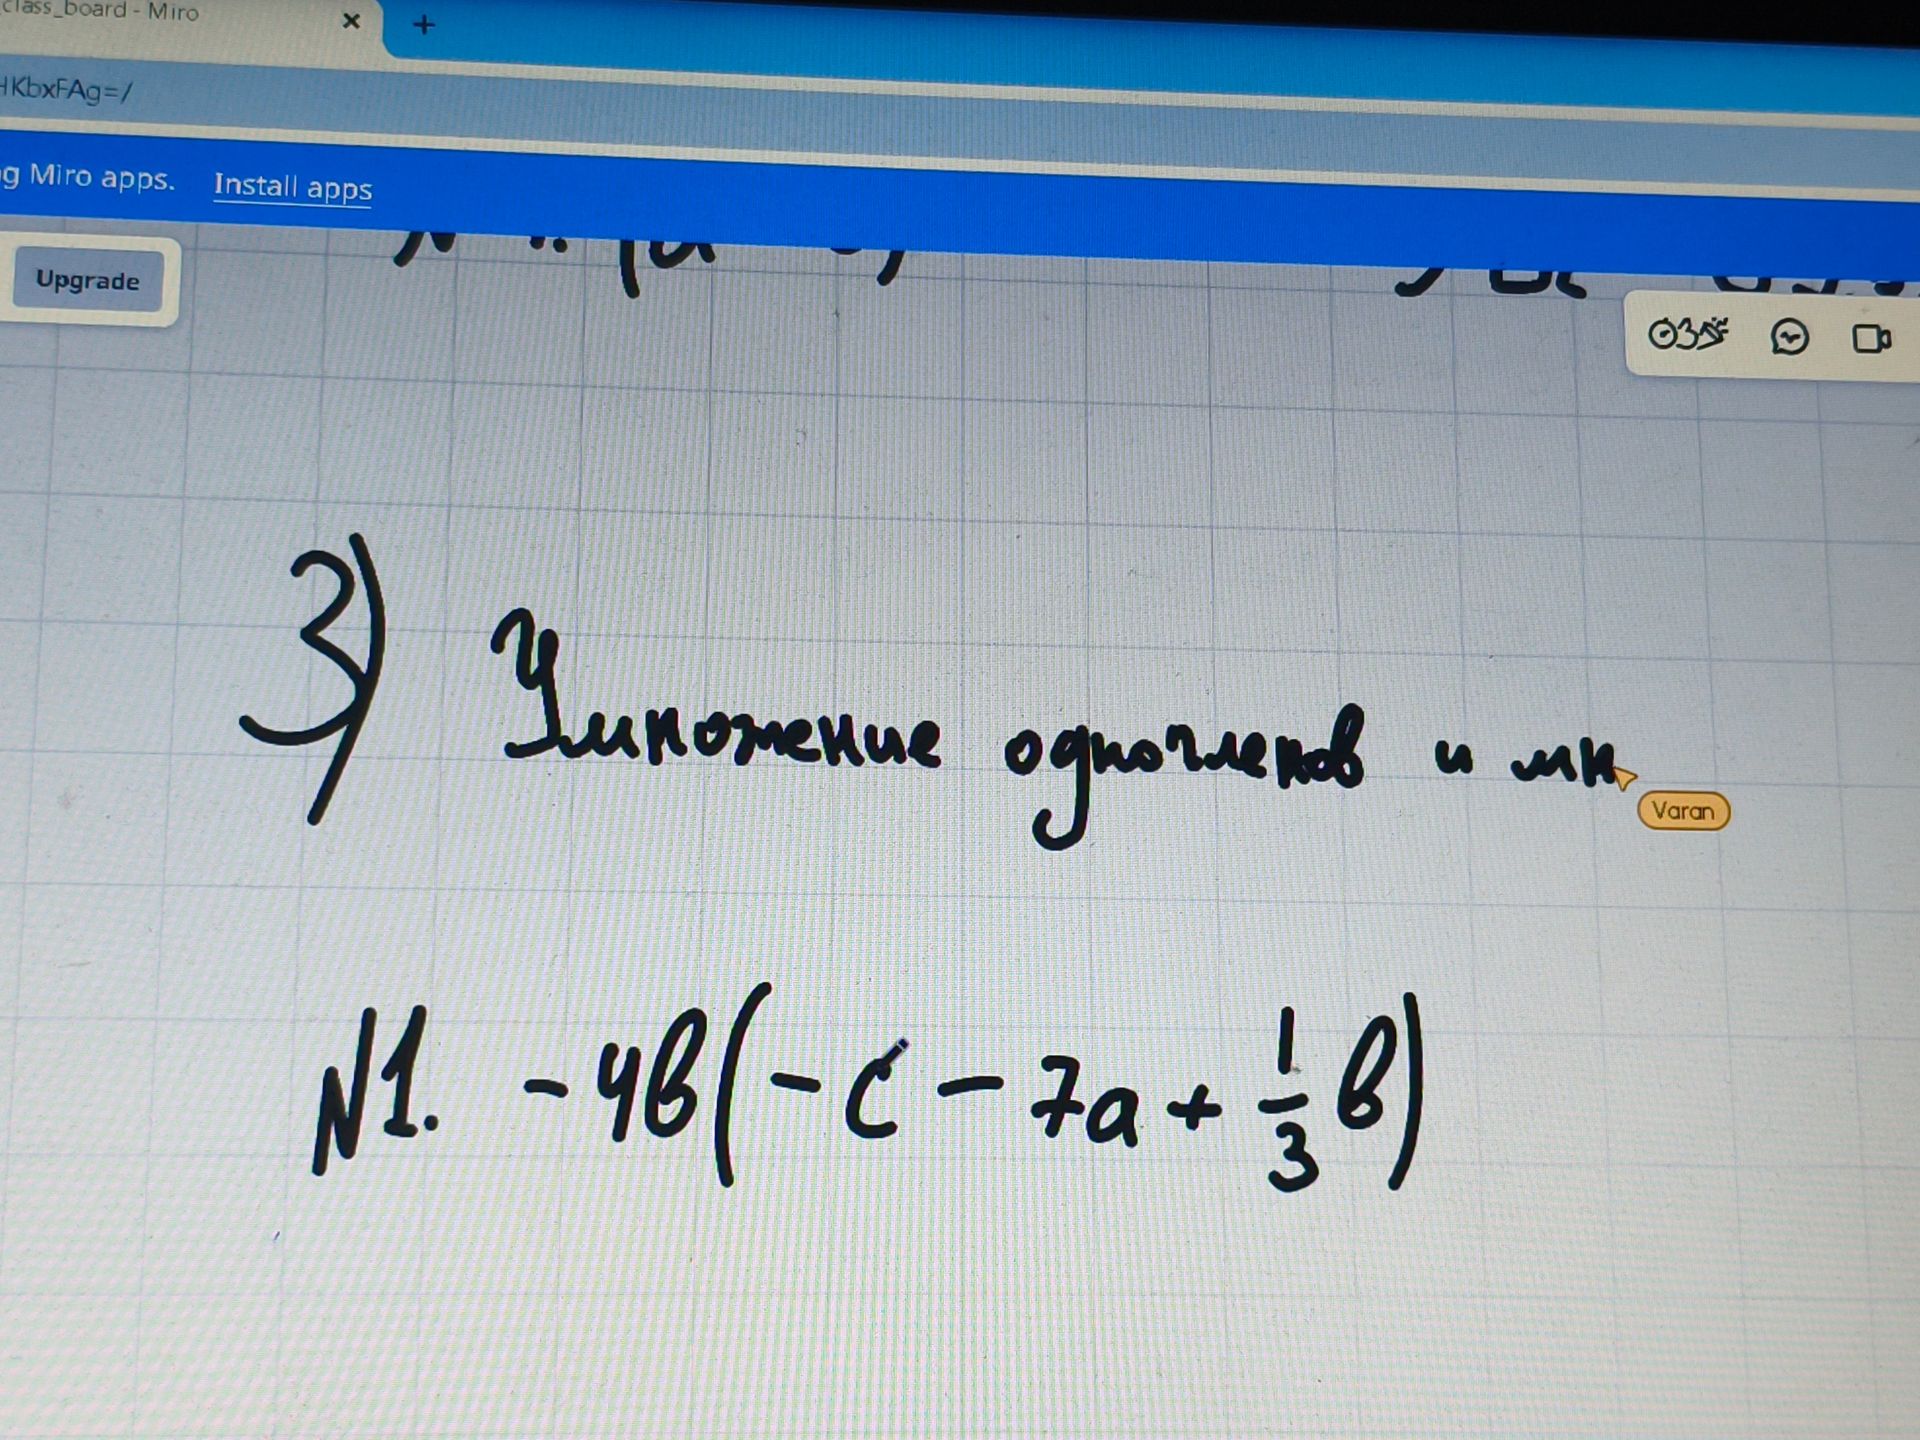 class_board - Miro
HKbxFAg=/
ng Miro apps. Install apps
Upgrade
3) Умножение одночленов и мн
Varan
N1. -4в(-c - 7a + 1/3 в)